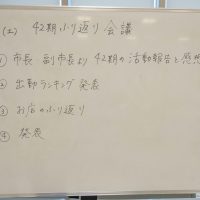 (土) 42期ふり返り会議
① 市長 副市長より 42期の活動報告と感想
② 出勤ランキング発表
③ お店のふり返り
④ 発表